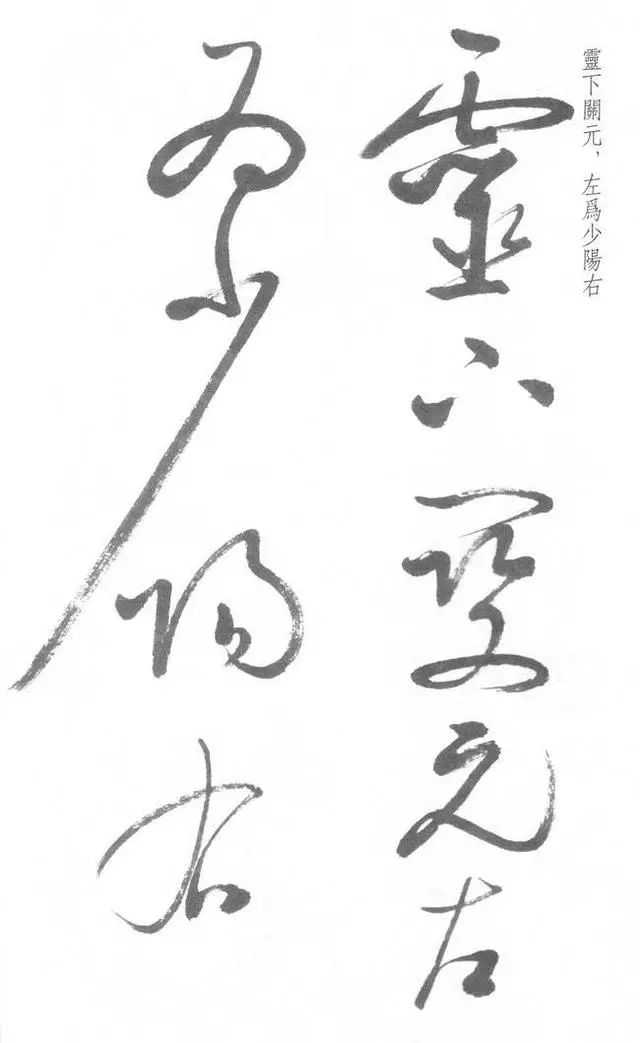 靈下關元，左爲少陽右
靈下關元左
爲少陽右